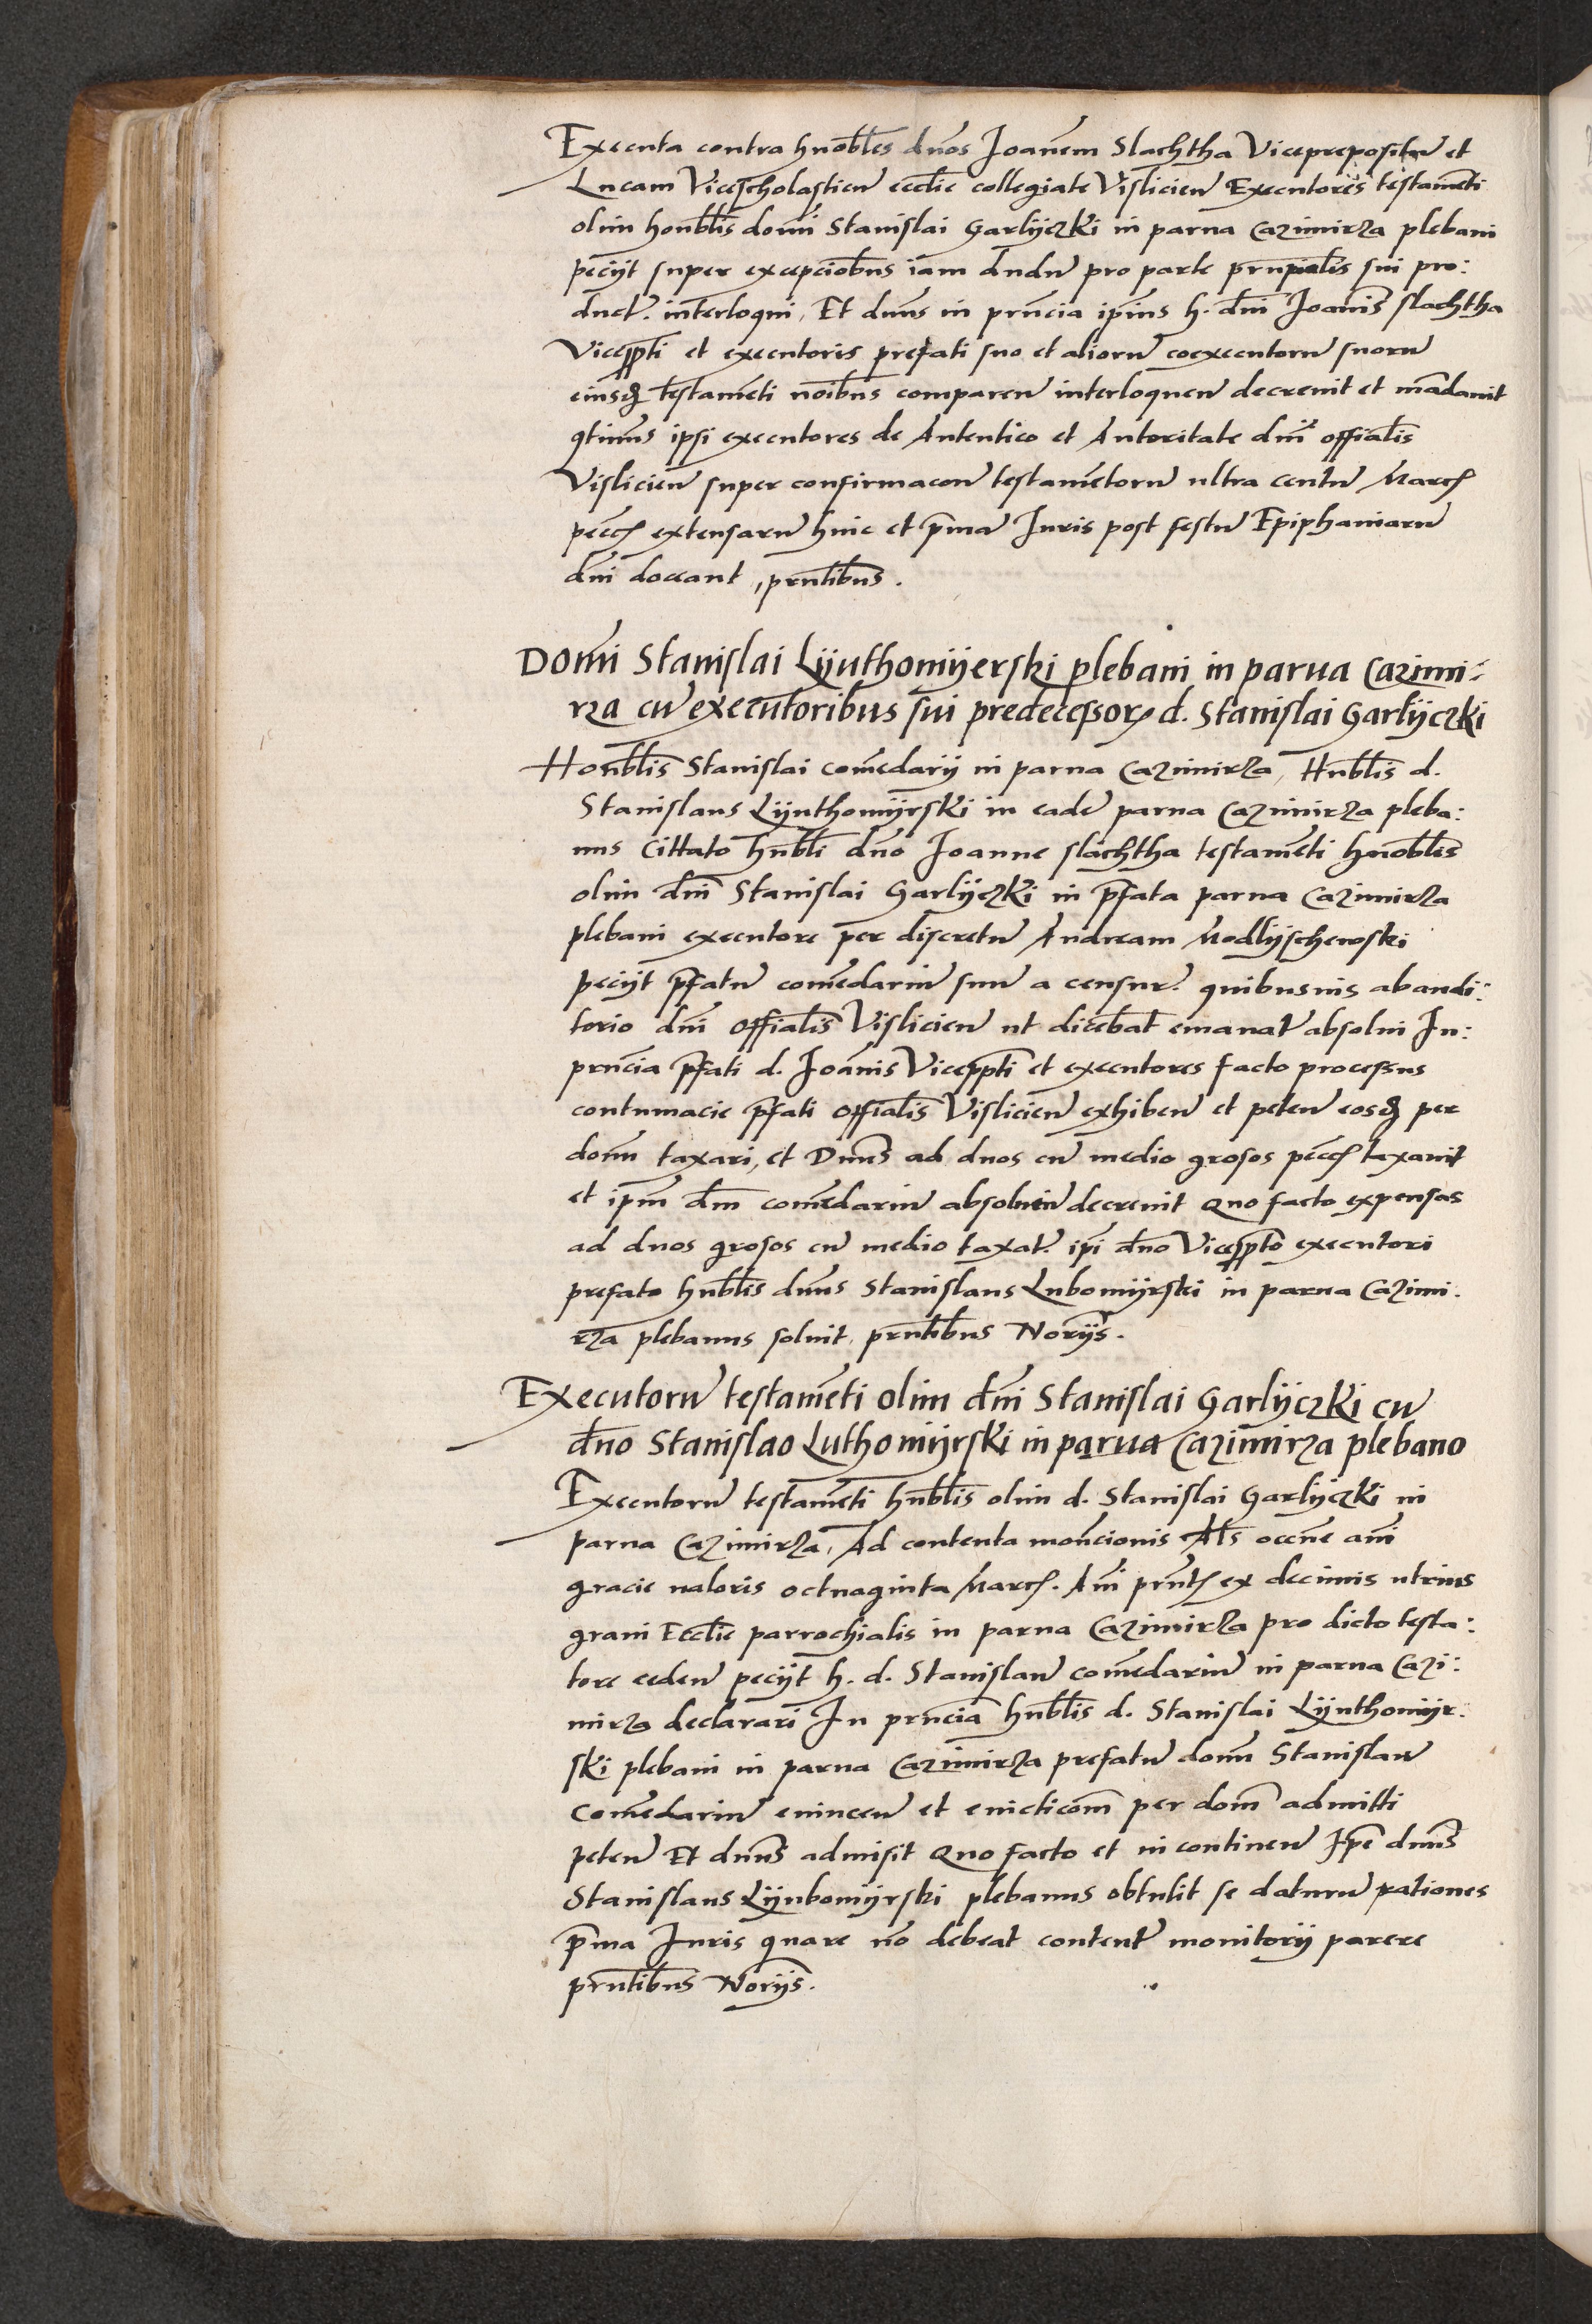 Executa contra hnobles dnos Joanem Slachtha Viceprepositu et
Lucam Vicescholasticu ecclie collegiate Vislicien Executores testameti
olim honblis domi Stanislai Garlyczki in parua Cazimirza plebani
peciyt super excepciobus iam dudu pro parte prnpialis sui pro:
duct. interloqui, Et duns in prncia ipius h. dni Joanis slachtha
Viceppti et executoris prefati suo et alioru coexecutoru suoru
eiusq testameti noibus comparen interloquen decreuit et madauit
qtinus ipsi executores de Autentico et Autoritate dni offialis
Vislicien super confirmacon testametoru ultra centu March
pecch extensaru huic et pma Juris post festu Epiphaniaru
dni doceant, prntibus.
Domi Stanislai Lyuthomyerski plebani in parua Cazimi:
rza cu executoribus sui predecessor d. Stanislai Garlyczki
Honblis Stanislai comedarij in parua Cazimirza, Hnblis d.
Stanislaus Lyuthomyrski in eade parua Cazimirza pleba:
nus Cittato hnbli dno Joanne slachtha testameti hnobles
olim dni Stanislai Garlyczki in pfata parua Cazimirza
plebani executore per discretu Andream Modlyschewski
peciyt pfatu comedariu suu a censur. quibusuis ab audi:
torio dni Offialis Vislicien ut dicebat emanat absolui In:
prncia pfati d. Joanis Viceppti et executores facto processus
contumacie pfati Offialis Vislicien exhiben et peten eosq per
domn taxari, et Duns ad duos cu medio grosos pecch taxauit
et ipm dm comedariu absoluen decreuit Quo facto expensas
ad duos grosos cu medio taxat. ipi dno Viceppto executori
prefato hnblis duns Stanislaus Lubomyrski in parua Cazimi.
rza plebanus soluit, prntibus Norijs.
Executoru testameti olim dni Stanislai Garlyczki cu
dno Stanislao Luthomyrski in parua Cazimirza plebano
Executoru testameti hnblis olim d. Stanislai Garlyczki in
parua Cazimirza, Ad contenta moncionis Als occne ani
gracie ualoris octuaginta March. Ani prnth ex decimis utrius
grani Ecclie parrochialis in parua Cazimirza pro dicto testa:
tore ceden peciyt h. d. Stanislau comedariu in parua Cazi:
mirza declarari In prncia hnblis d. Stanislai Lyuthomyr:
ski plebani in parua Cazimirza prefatu domn Stanislau
Comedariu euincen et euicticom per dom admitti
peten Et duns admisit Quo facto et in continen Ipe duns
Stanislaus Lyubomyrski plebanus obtulit se daturu rationes
pma Juris quare no debeat content monitorij parere
prntibus Norijs.